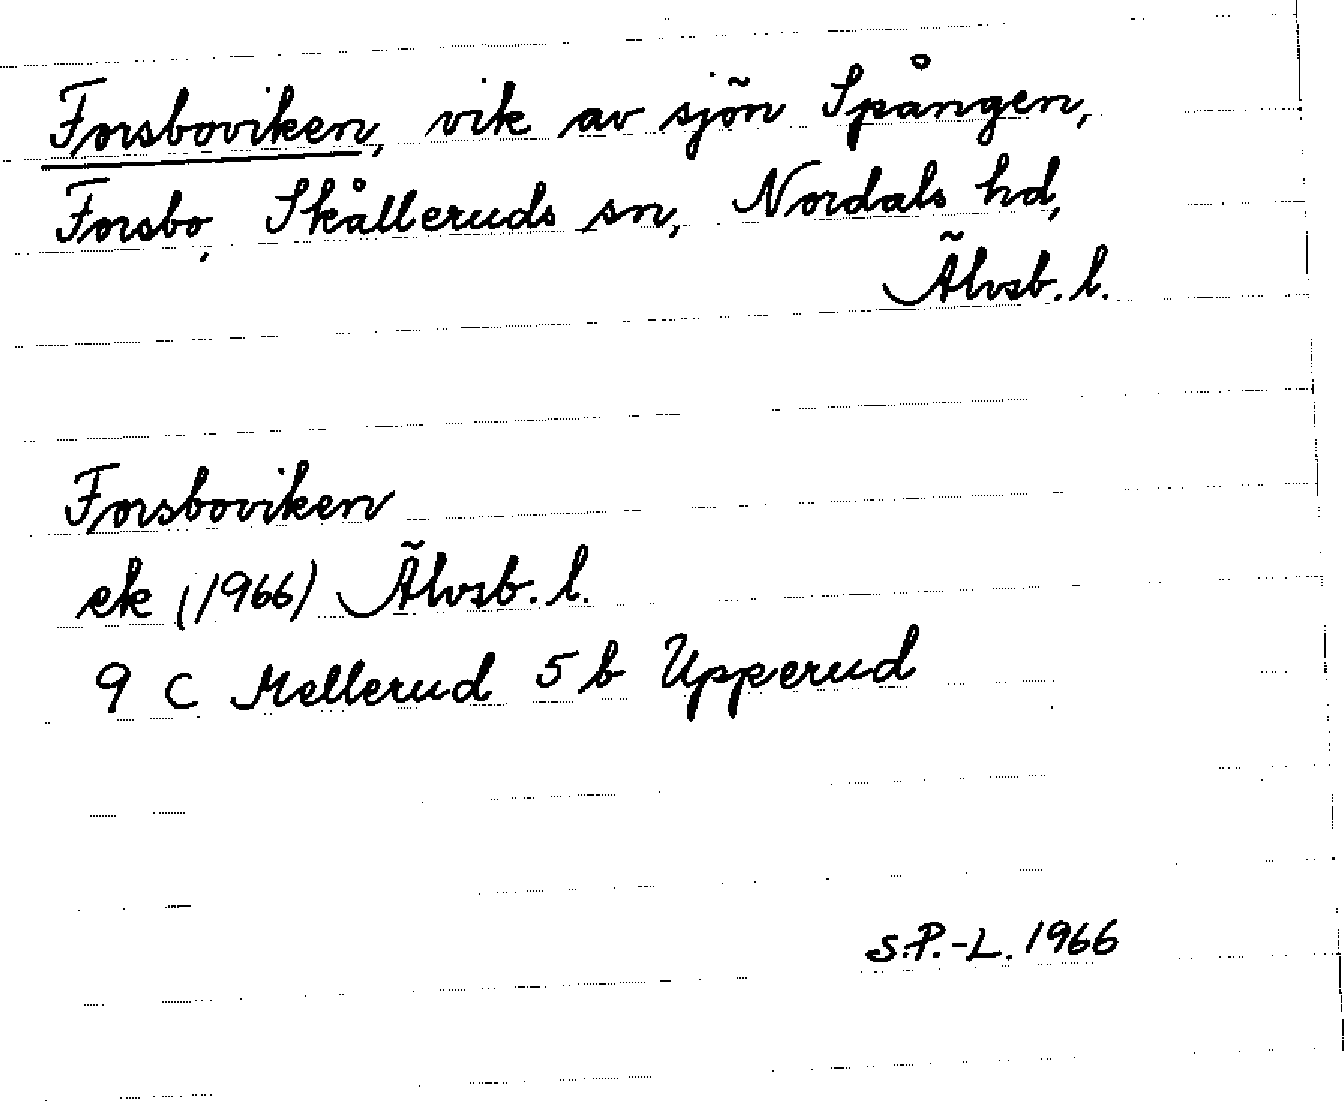 Forsboviken, vik av sjön Spången,
Forsbo, Skålleruds sn, Nordals hd,
Älvsb. l.
Forsboviken
ek (1966) Älvsb. l.
9 C Mellerud 5 b Upperud
S.P.-L. 1966